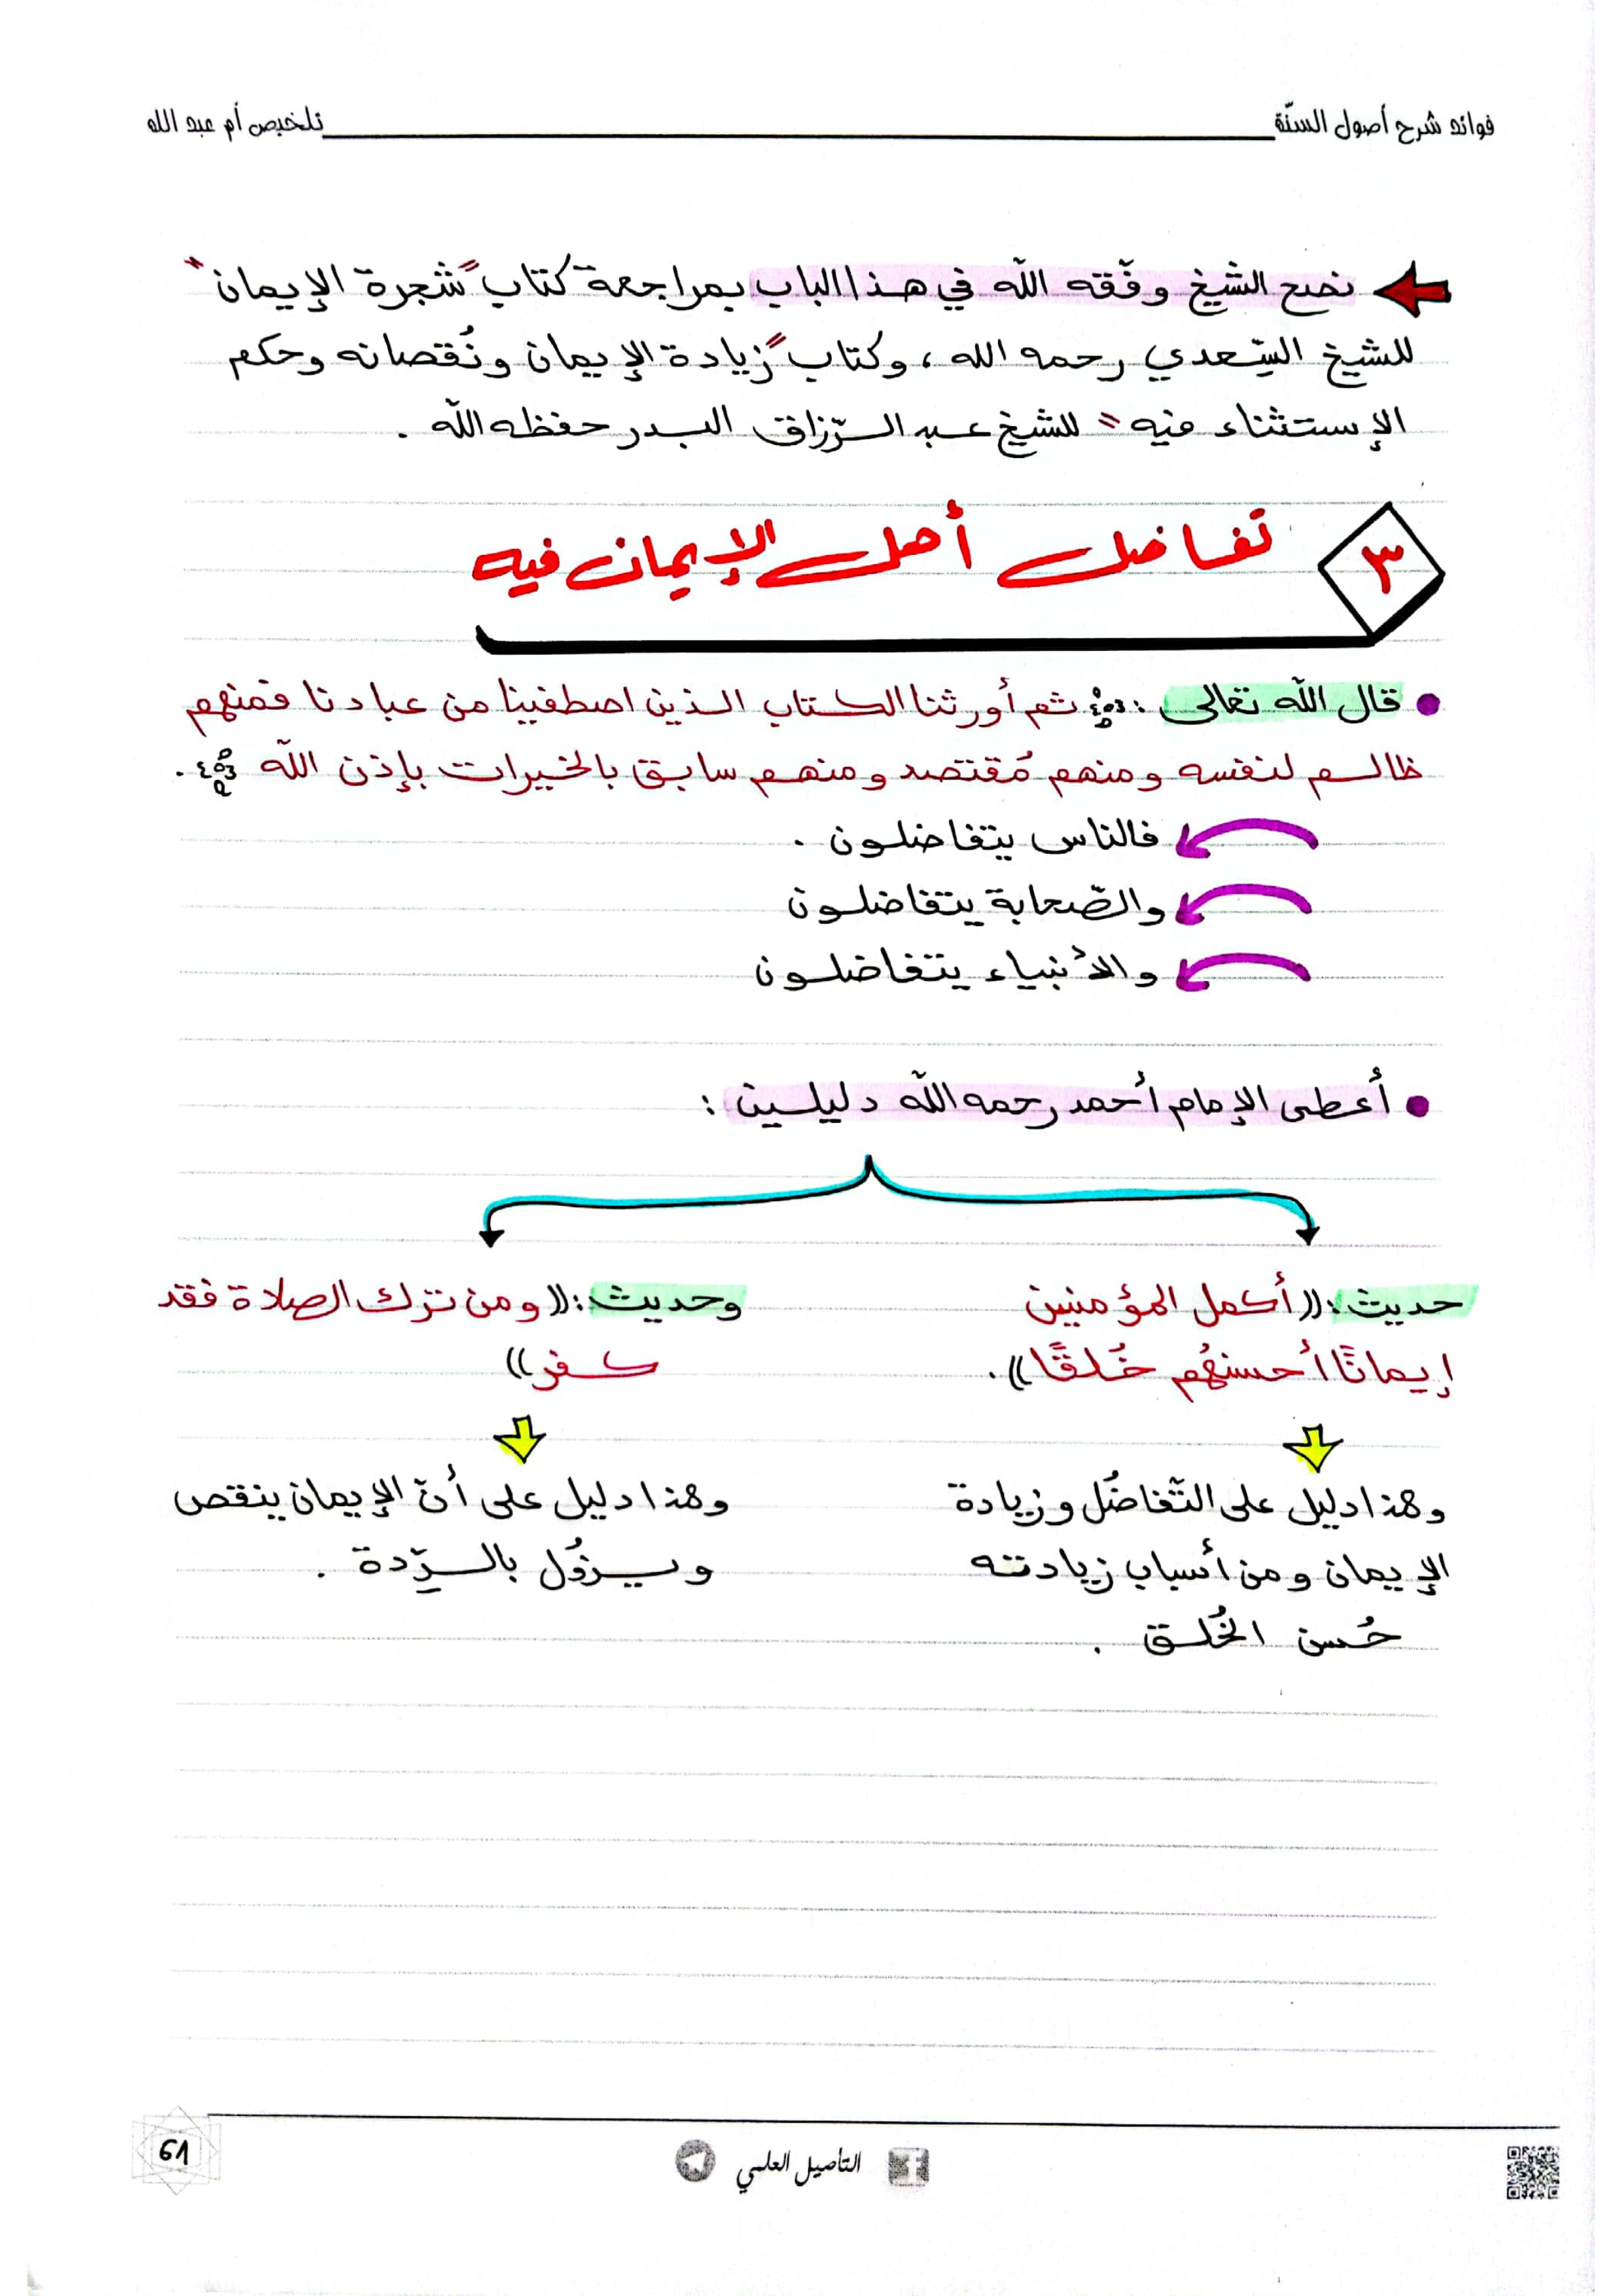 فوائد شرح أصول السنّة
تلخيص أم عبد الله
نصح الشيخ وفّقه الله في هذا الباب بمراجعة كتاب "شجرة الإيمان"
للشيخ السّعدي رحمه الله، وكتاب "زيادة الإيمان ونُقصانه وحكم
الإستثناء فيه" للشيخ عبد الرّزاق البدر حفظه الله.
٣
تفاضل أهل الإيمان فيه
• قال الله تعالى: ﴿ ثم أورثنا الكتاب الذين اصطفينا من عبادنا فمنهم
ظالم لنفسه ومنهم مُقتصد ومنهم سابق بالخيرات بإذن الله ﴾.
فالناس يتفاضلون.
والصّحابة يتفاضلون
والأنبياء يتفاضلون
• أعطى الإمام أحمد رحمه الله دليلين:
حديث: ((أكمل المؤمنين
إيمانًا أحسنهُم خُلقًا)).
وهذا دليل على التّفاضُل وزيادة
الإيمان ومن أسباب زيادته
حُسن الخُلق.
وحديث: ((ومن ترك الصلاة فقد
كفر))
وهذا دليل على أنّ الإيمان ينقص
ويزوُل بالرِّدة.
61
التأصيل العلمي